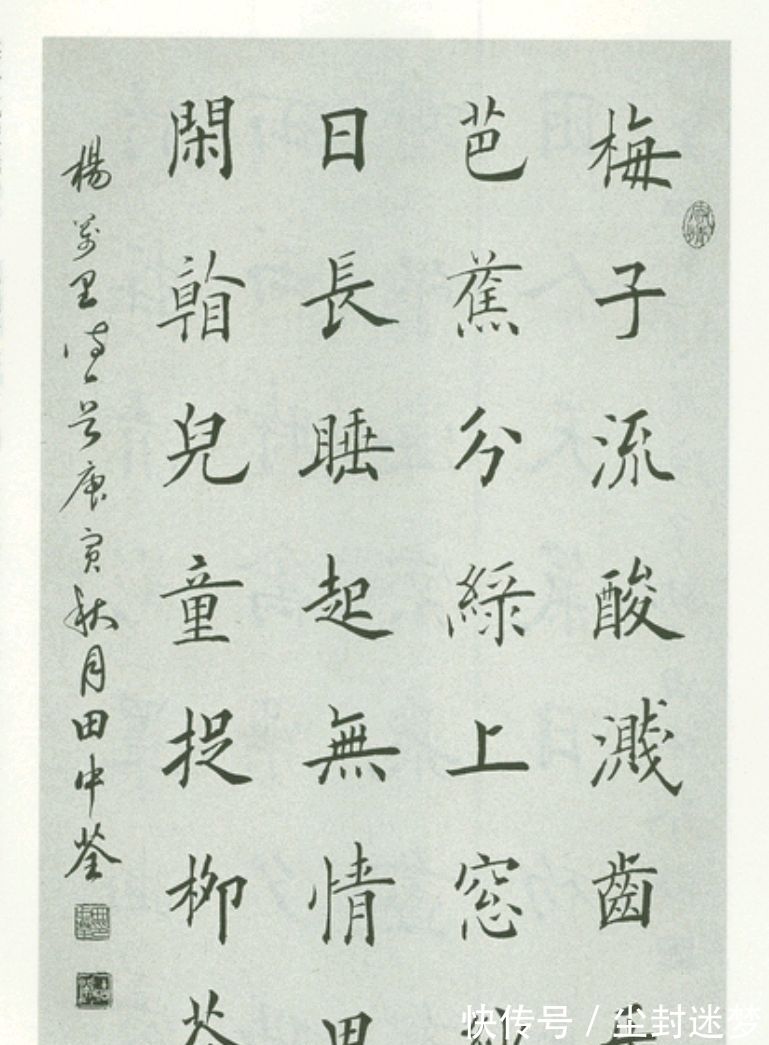 梅子流酸濺齒
芭蕉分綠上窓
日長睡起無情
閑看兒童捉柳
楊萬里詩一首庚寅秋月田中荃
快传号 / 尘封迷梦